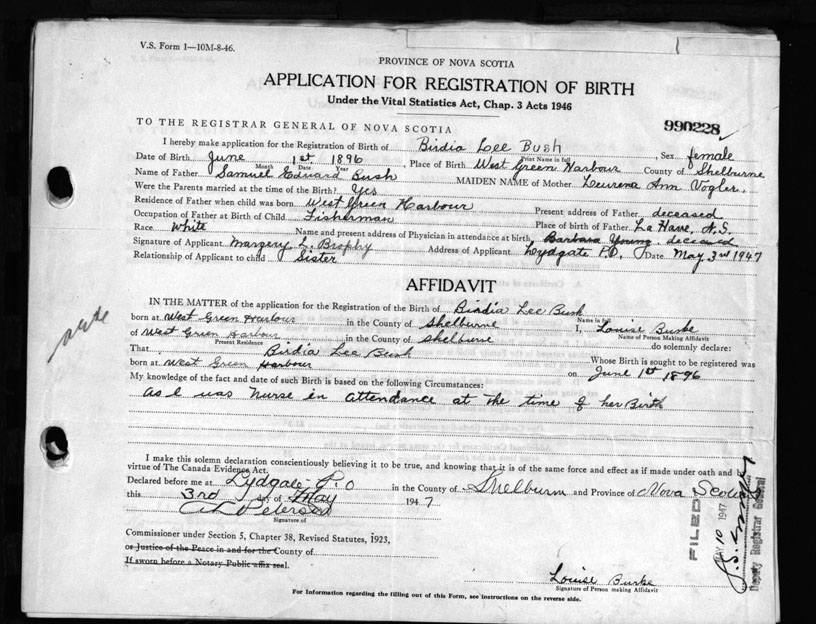 V.S. Form 1—10M-8-46.
PROVINCE OF NOVA SCOTIA
APPLICATION FOR REGISTRATION OF BIRTH
Under the Vital Statistics Act, Chap. 3 Acts 1946
990228
TO THE REGISTRAR GENERAL OF NOVA SCOTIA
I hereby make application for the Registration of Birth of Birdia Lee Bush, Sex female
Print Name in full
Date of Birth June 1st 1896, Place of Birth West Green Harbour County of Shelburne
Month Date Year
Name of Father Samuel Edward Bush MAIDEN NAME of Mother Leurena Ann Vogler.
Were the Parents married at the time of the Birth? Yes
Residence of Father when child was born West Green Harbour Present address of Father deceased
Occupation of Father at Birth of Child Fisherman Place of birth of Father La Have, N.S.
Race White Name and present address of Physician in attendance at birth Barbara Young deceased
Signature of Applicant Margery L. Brophy Address of Applicant Lydgate P.O. Date May 3rd 1947
Relationship of Applicant to child Sister
AFFIDAVIT
IN THE MATTER of the application for the Registration of the Birth of Birdia Lee Bush
Name in full
born at West Green Harbour in the County of Shelburne I, Louise Burke
Name of Person Making Affidavit
of West Green Harbour in the County of Shelburne do solemnly declare:
Present Residence
That Birdia Lee Bush Whose Birth is sought to be registered was
born at West Green Harbour on June 1st 1896
My knowledge of the fact and date of such Birth is based on the following Circumstances:
As I was nurse in attendance at the time of her Birth
I make this solemn declaration conscientiously believing it to be true, and knowing that it is of the same force and effect as if made under oath and
virtue of The Canada Evidence Act.
Declared before me at Lydgate P.O in the County of Shelburn and Province of Nova Scotia
this 3rd day of May 1947
Peterson
Signature of
Commissioner under Section 5, Chapter 38, Revised Statutes, 1923,
or Justice of the Peace in and for the County of
If sworn before a Notary Public affix seal.
Louise Burke
Signature of Person making Affidavit
For Information regarding the filling out of this Form, see instructions on the reverse side.
FILED
MAY 10 1947
Deputy Registrar General